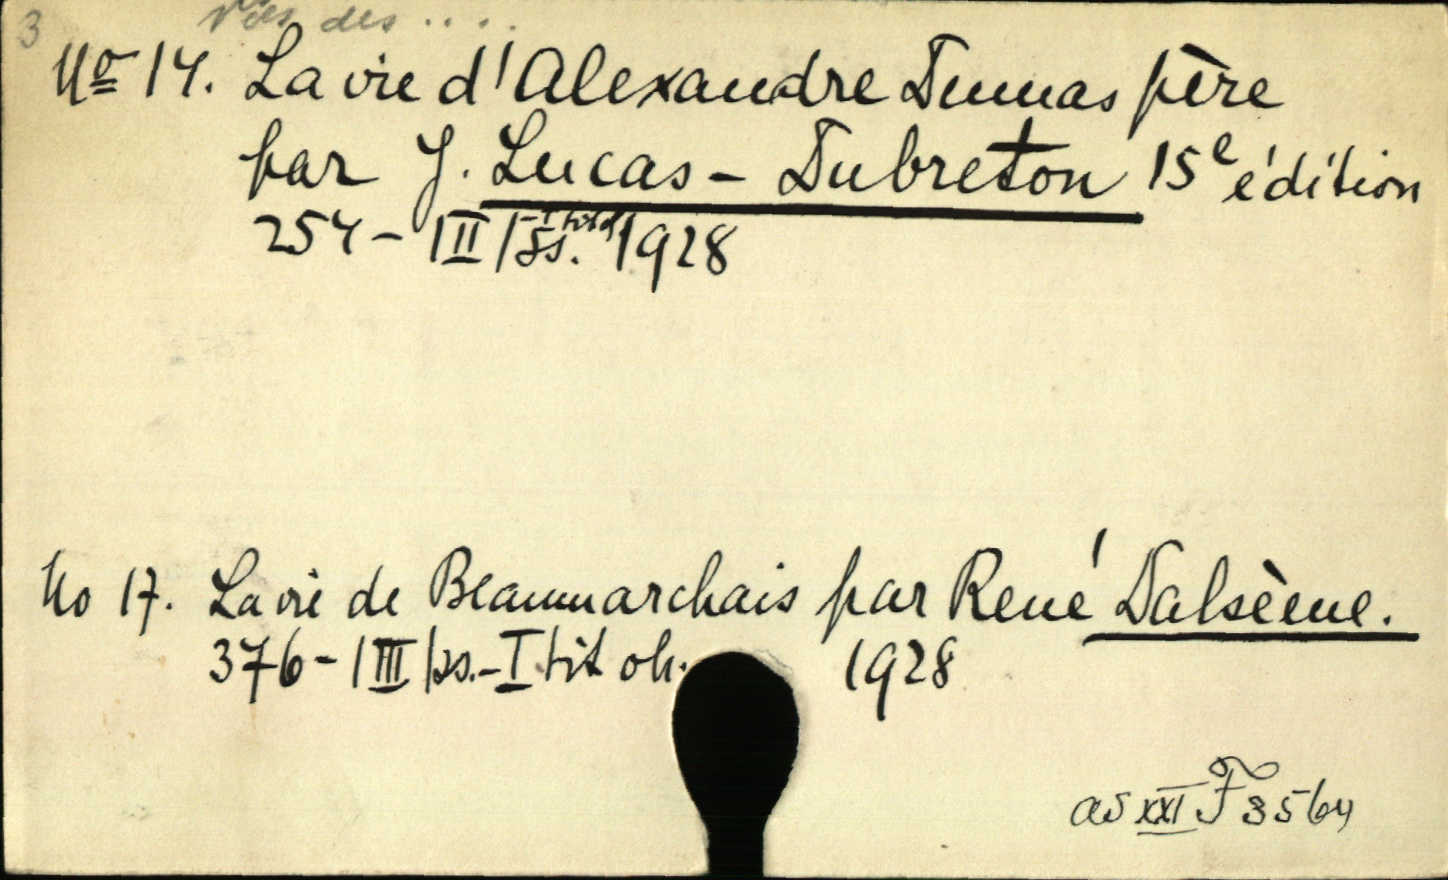 3 Vies des ....
No 14. La vie d'Alexandre Dumas père
par J. Lucas-Dubreton 15e édition
254 - |II| ss. 1928
No 17. La vie de Beaumarchais par René Dalsème.
376 - |III| ss. - I tit ok. 1928
as XXI F 3564